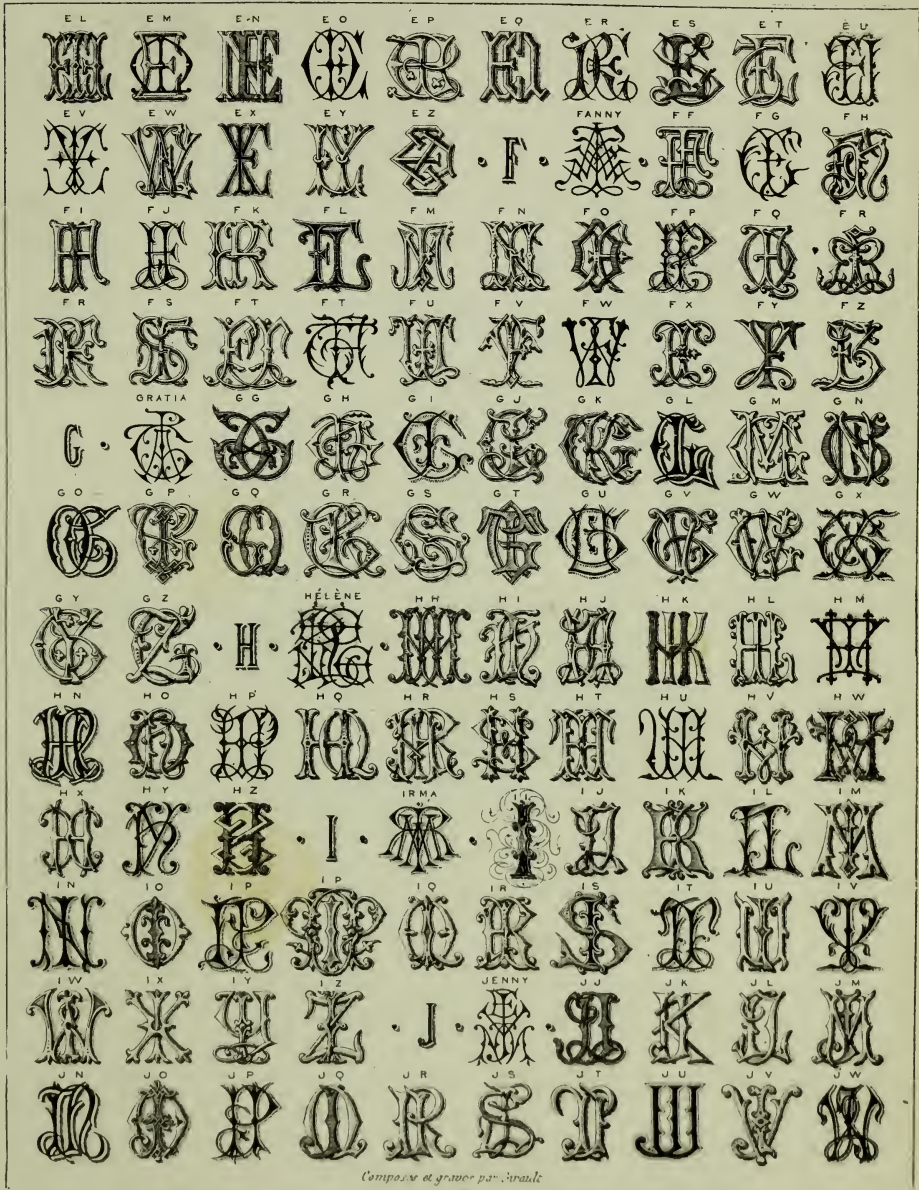 EL EM E-N EO EP EQ ER ES ET EU
EV EW EX EY EZ · F · FANNY · FF FG FH
FI FJ FK FL FM FN FO FP FQ FR
FR FS FT FT FU FV FW FX FY FZ
G · GRATIA GG GH GI GJ GK GL GM GN
GO GP GQ GR GS GT GU GV GW GX
GY GZ · H · HÉLÈNE · HH HI HJ HK HL HM
HN HO HP HQ HR HS HT HU HV HW
HX HY HZ · I · IRMA · I IJ IK IL IM
IN IO IP IP IQ IR IS IT IU IV
IW IX IY IZ · J · JENNY · JJ JK JL JM
JN JO JP JQ JR JS JT JU JV JW
Composé et gravé par